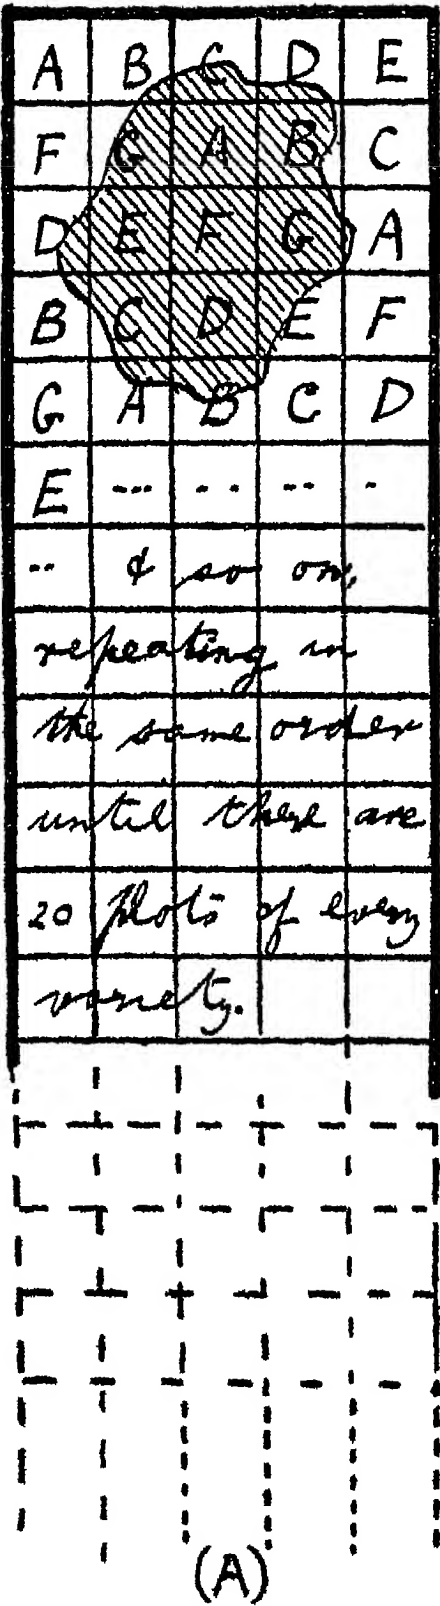 A B C D E
F G A B C
D E F G A
B C D E F
G A B C D
E --- - - - -- -
-- & so on,
repeating in
the same order
until there are
20 plots of every
variety.
(A)